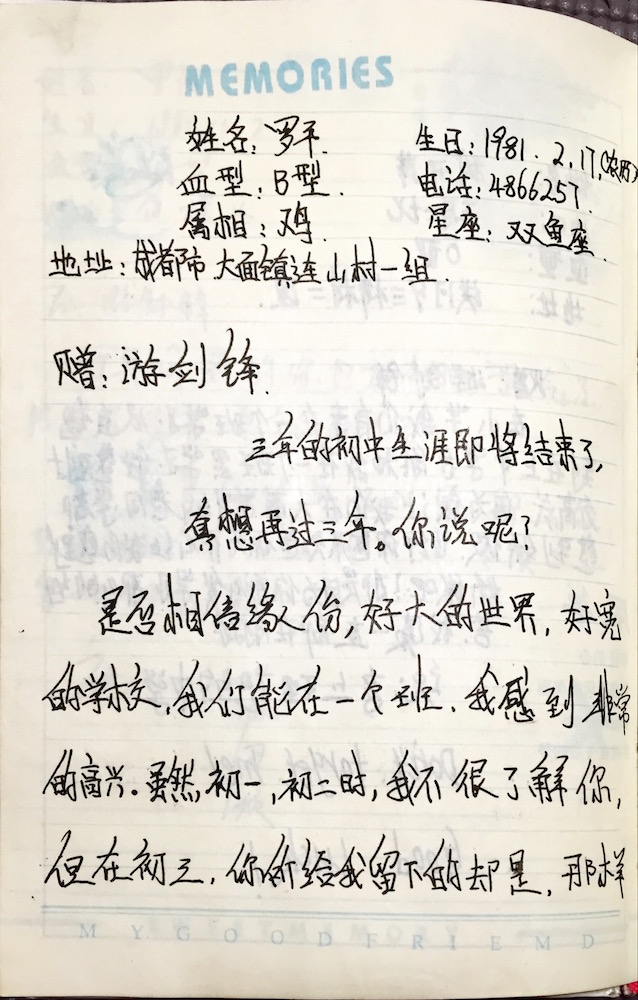 MEMORIES
姓名：罗平.
生日：1981.2.17.(农历)
血型：B型.
电话：4866257.
属相：鸡.
星座：双鱼座.
地址：成都市大面镇连山村一组.
赠：游剑锋.
三年的初中生涯即将结束了,
真想再过三年。你说呢?
是否相信缘人份, 好大的世界, 好宽
的学校, 我们能在一个班, 我感到非常
的高兴. 虽然, 初一, 初二时, 我不很了解你,
但在初三, 你所给我留下的却是, 那样
MY GOOD FRIEMD